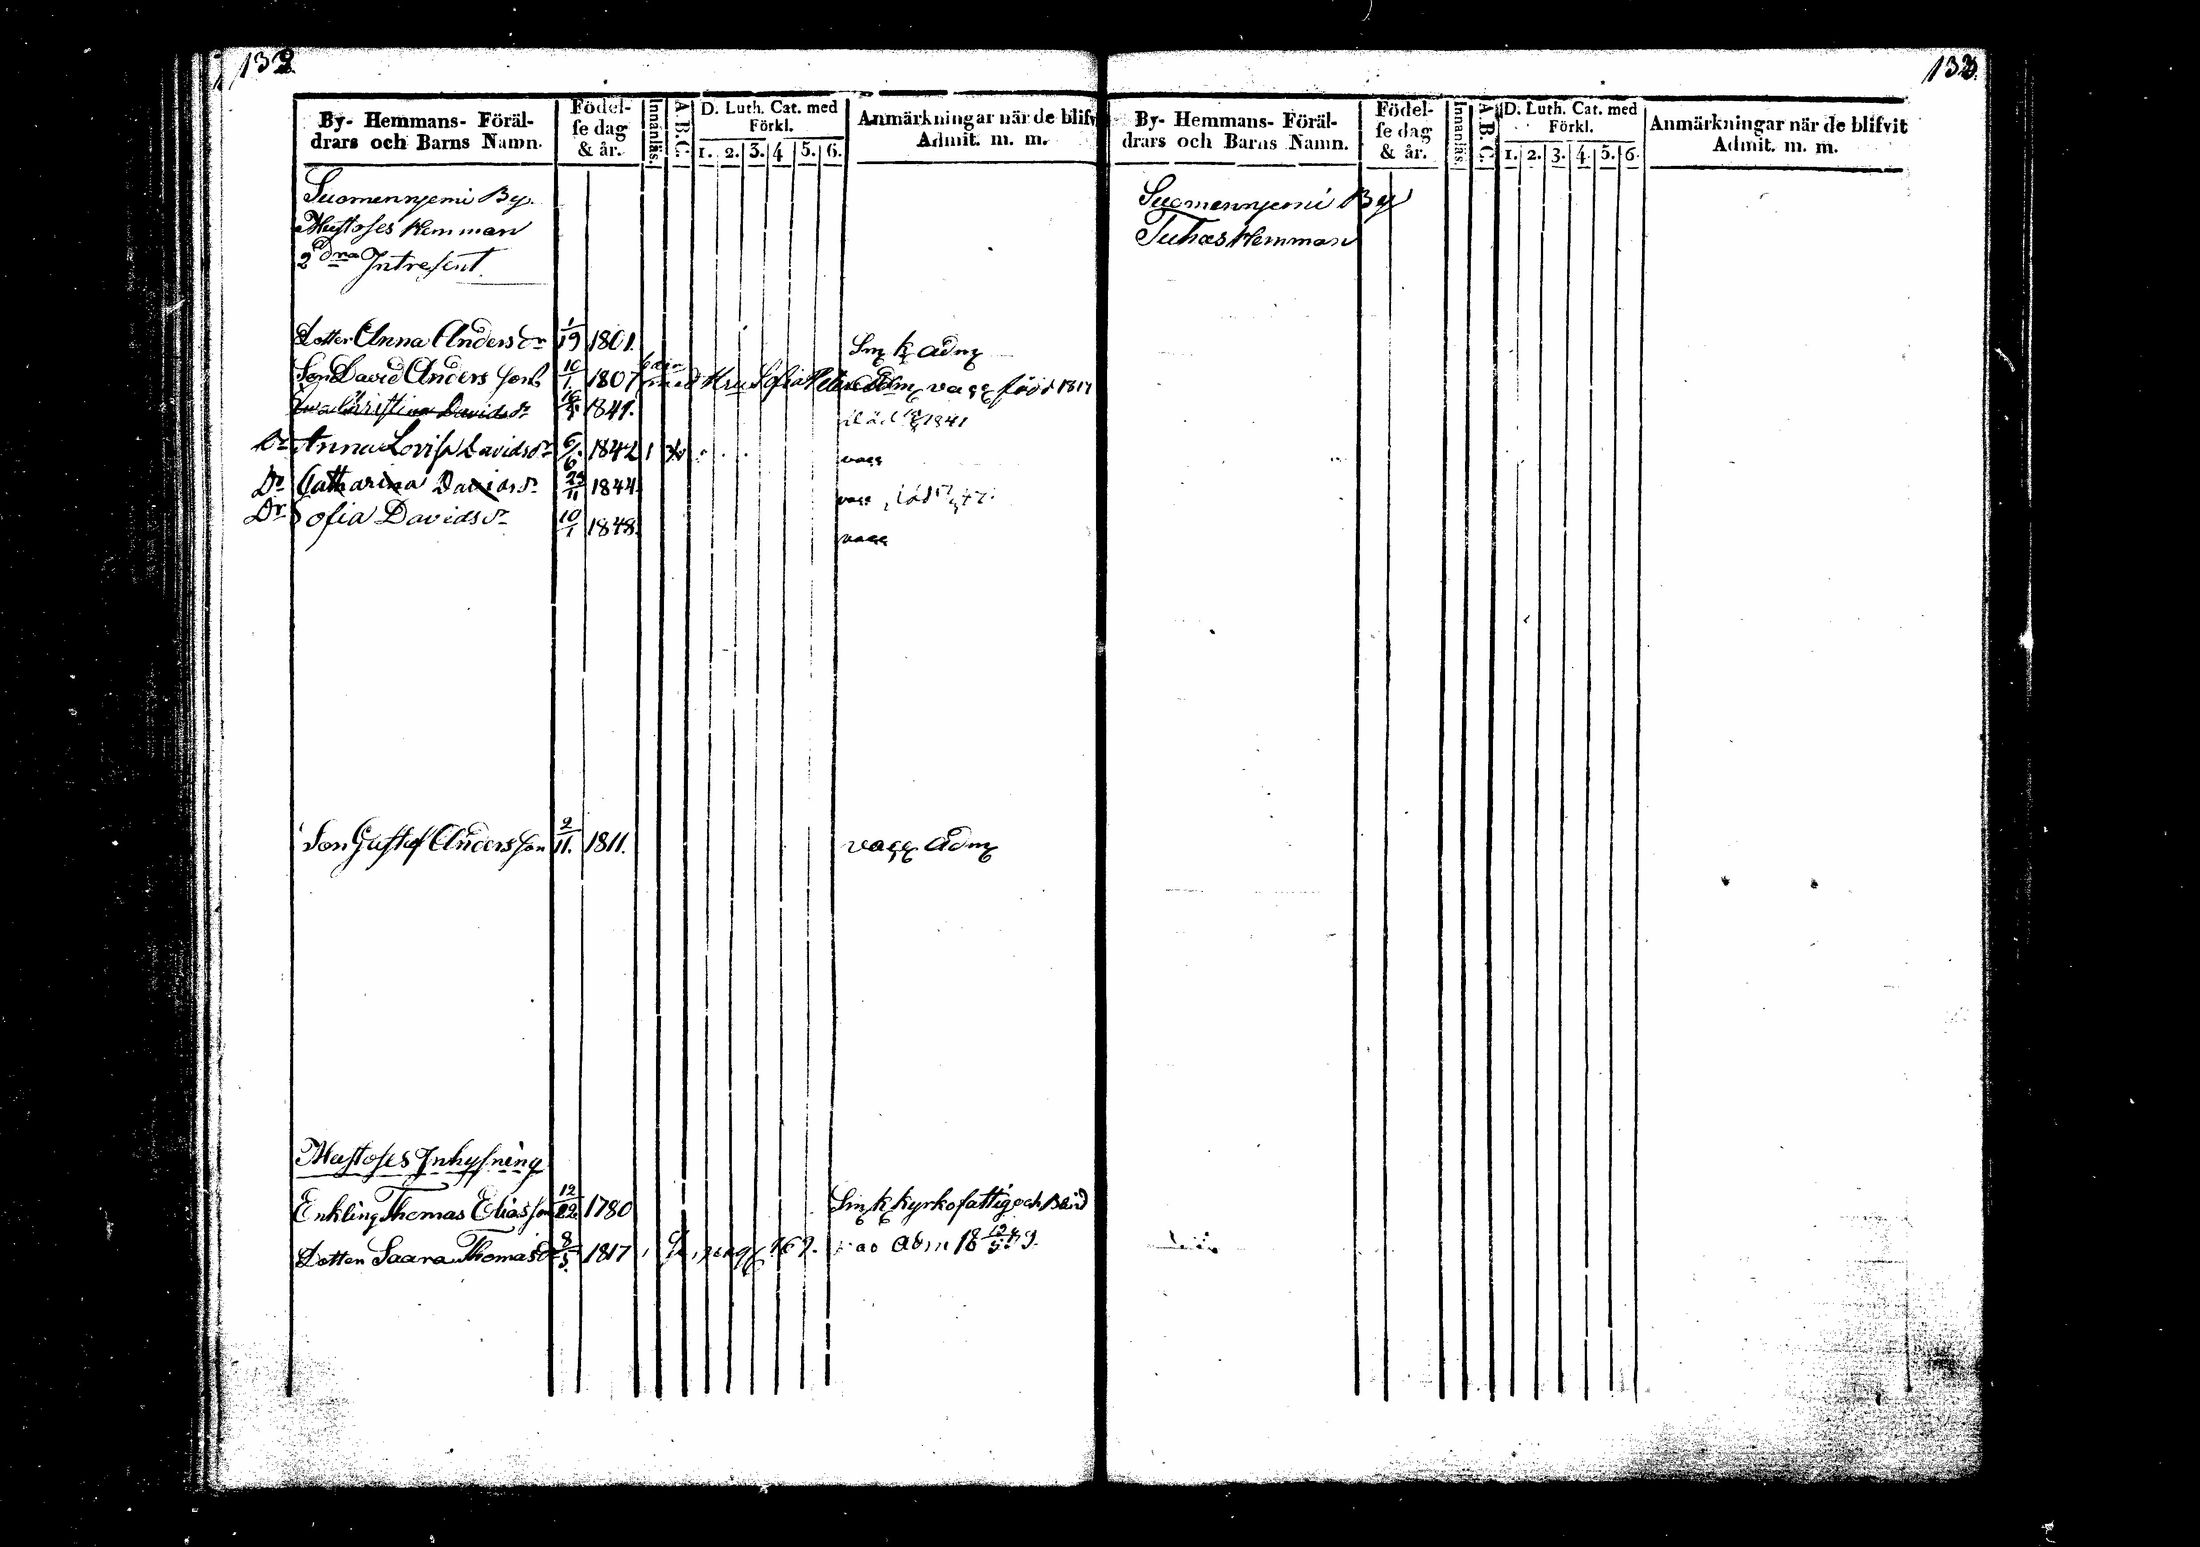 132
By- Hemmans- Föräl-
drars och Barns Namn.
Födel-
se dag
& år.
Innanläs.
A. B. C.
D. Luth. Cat. med
Förkl.
1. 2. 3. 4 5. 6.
Anmärkningar när de blifv
Admit. m. m.
Suomennjemi By.
Mustoses Hemman
2 dra Intresent
Dotter Anna Anders dr 1/19 1801. Smk adm
Son David Anders son 10/1 1807 med Sofia vacc född 1817
Eva Christina Davids dr 16/ 1841. 1841
Dr Anna Lovisa Davids dr 6/6 1842 1 vacc
Dr Catharina Davids dr 23/11 1844 vacc 47
Dr Sofia Davids dr 10/1 1848. vacc
Son Gustaf Andersson 2/11. 1811. vacc adm
Mustoses Inhysning
Enkling Thomas Eliasson 12/22 1780 Smk kyrkofattig och Blind
Dotter Saara Thomas dr 8/5. 1817 vac adm 18
133.
By- Hemmans- Föräl-
drars och Barns Namn.
Födel-
se dag
& år.
Innanläs.
A. B. C.
D. Luth. Cat. med
Förkl.
1. 2. 3. 4. 5. 6.
Anmärkningar när de blifvit
Admit. m. m.
Suomennjemi By
Tuhas Hemman